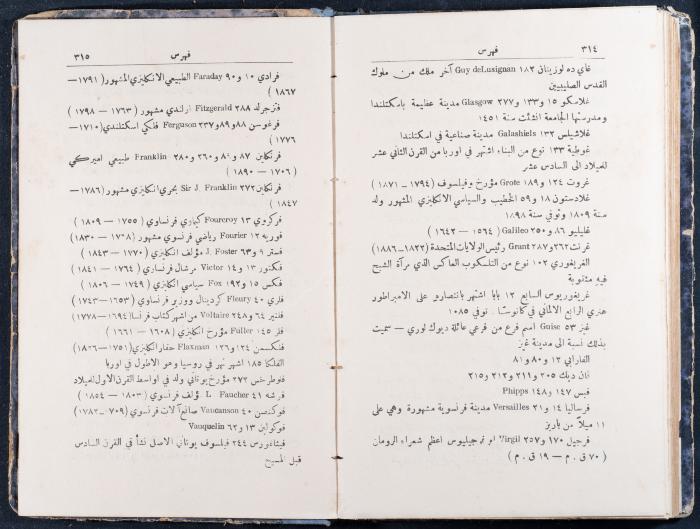 ٣١٤ فهرس
غاي ده لوزينان ١٨٢ Guy deLusignan آخر ملك من ملوك
القدس الصليبيين
غلاسكو ١٥ و١٣٣ و٢٧٧ Glasgow مدينة عظيمة باسكتلندا
ومدرستها الجامعة انشئت سنة ١٤٥١
غلاشيلس ١٣٢ Galashiels مدينة صناعية في اسكتلندا
غوطية ١٣٣ نوع من البناء اشتهر في اوربا من القرن الثاني عشر
للميلاد الى السادس عشر
غروت ١٢٤ و١٨٩ Grote مؤرخ وفيلسوف (١٧٩٤ – ١٨٧١)
غلادستون ١٨ و٥٩ الخطيب والسياسي الانكليزي المشهور ولد
سنة ١٨٠٩ وتوفي سنة ١٨٩٨
غليليو ٨٦ و٢٥٠ Galileo (١٥٦٤ – ١٦٤٢)
غرنت ٢٦٢ و٢٨٧ Grant رئيس الولايات المتحدة (١٨٢٢–١٨٨٦)
الغريغوري ١٠٢ نوع من التلسكوب العاكس الذي مرآة الشبح
فيه مثقوبة
غريغوريوس السابع ١٢ بابا اشتهر بانتصاره على الامبراطور
هنري الرابع الالماني في كانوسا. توفي ١٠٨٥
غيز ٥٣ Guise اسم فرع من فرعي عائلة ديوك لوري – سميت
بذلك نسبة الى مدينة غيز
الفارابي ١٢ و٨٠ و٨١
فان ديك ٢٠٥ و٢١١ و٢١٢ و٢١٥
فبس ١٤٧ و١٤٨ Phipps
فرساليا ١٤ و٢١ Versailles مدينة فرنسوية مشهورة وهي على
١١ ميلاً من باريز
فرجيل ١٧٠ و٢٥٧ Virgil او فرجيليوس اعظم شعراء الرومان
(٧٠ ق.م – ١٩ ق.م)
فهرس ٣١٥
فرادي ١٠ و٩٠ Faraday الطبيعي الانكليزي المشهور (١٧٩١–
١٨٦٧)
فتزجرلد ٢٨٨ Fitzgerald ارلندي مشهور (١٧٦٣ – ١٧٩٨)
فرغوسن ٨٨ و٨٩ و٢٣٧ Ferguson فلكي اسكتلندي (١٧١٠–
١٧٧٦)
فرنكلين ٨٧ و٨٤ و٢٦٠ و٢٨٠ Franklin طبيعي اميركي
(١٧٠٦ – ١٨٩٠)
فرنكلين ٢٧٢ Sir J. Franklin بحري انكليزي مشهور (١٧٨٦–
١٨٤٧)
فركروي ١٣ Fourcroy كيماوي فرنساوي (١٧٥٥ – ١٨٠٩)
فوريه ١٢ Fourier رياضي فرنسوي مشهور (١٧٣٨ – ١٨٣٠)
فستر ٩ و٦٣ J. Foster مؤلف انكليزي (١٧٧٠ – ١٨٤٣)
فكتور ١٣ و١٤ Victor مرشال فرنساوي (١٧٦٤ – ١٨٤١)
فكس ١٥ و١٩٢ Fox سياسي انكليزي (١٧٤٩ – ١٨٠٦)
فلري ٤٠ Fleury كردينال ووزير فرنساوي (١٦٥٣–١٧٤٣)
فلتير ٦٤ و٢٤٨ Voltaire من اشهر كتاب فرنسا (١٦٩٤–١٧٧٨)
فلر ١٤٥ Fuller مؤرخ انكليزي (١٦٠٨ – ١٦٦١)
فلكسمن ١٢٤ و١٢٦ Flaxman حفار انكليزي (١٧٥١–١٨٢٦)
الفلكا ١٨٥ اشهر نهر في روسيا وهو الاطول في اوربا
فلوطرخس ٢٧٢ مؤرخ يوناني ولد في اواسط القرن الاول للميلاد
فرشه ٤١ L. Faucher مؤلف (١٨٠٣ – ١٨٥٤)
فوكنسن ٤٠ Vaucanson صانع آلات فرنسوي (١٧٠٩–١٧٨٢)
فوكولين ١٣ و٦٢ Vauquelin
فيثاغورس ٢٤٤ فيلسوف يوناني الاصل نشأ في القرن السادس
قبل المسيح